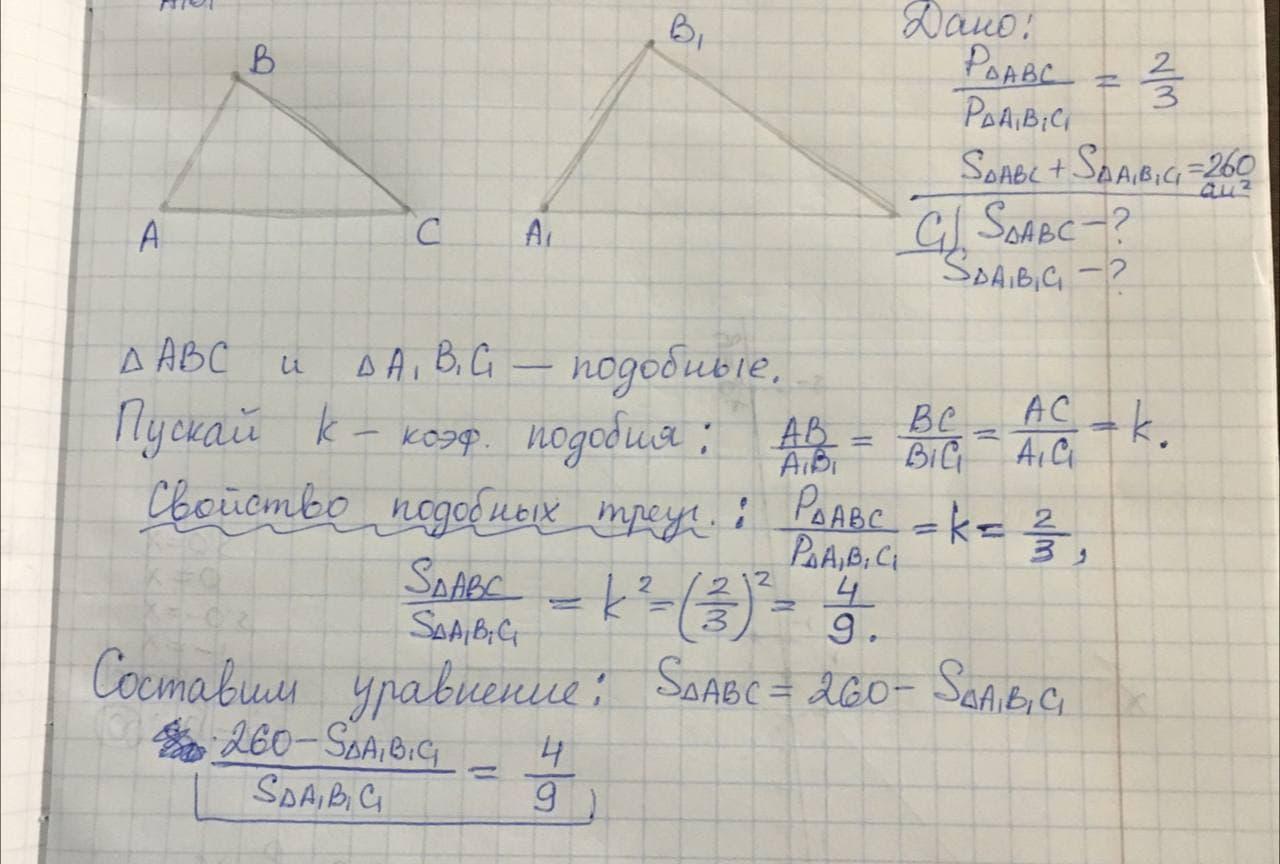 Дано:
B
B₁
P△ABC / P△A₁B₁C₁ = 2/3
S△ABC + S△A₁B₁C₁ = 260
см²
A
C
A₁
C₁
S△ABC – ?
S△A₁B₁C₁ – ?
△ABC и △A₁B₁C₁ — подобные.
Пускай k – коэф. подобия: AB/A₁B₁ = BC/B₁C₁ = AC/A₁C₁ = k.
Свойство подобных треуг.: P△ABC / P△A₁B₁C₁ = k = 2/3,
S△ABC / S△A₁B₁C₁ = k² = (2/3)² = 4/9.
Составим уравнение: S△ABC = 260 – S△A₁B₁C₁
260 – S△A₁B₁C₁ / S△A₁B₁C₁ = 4/9